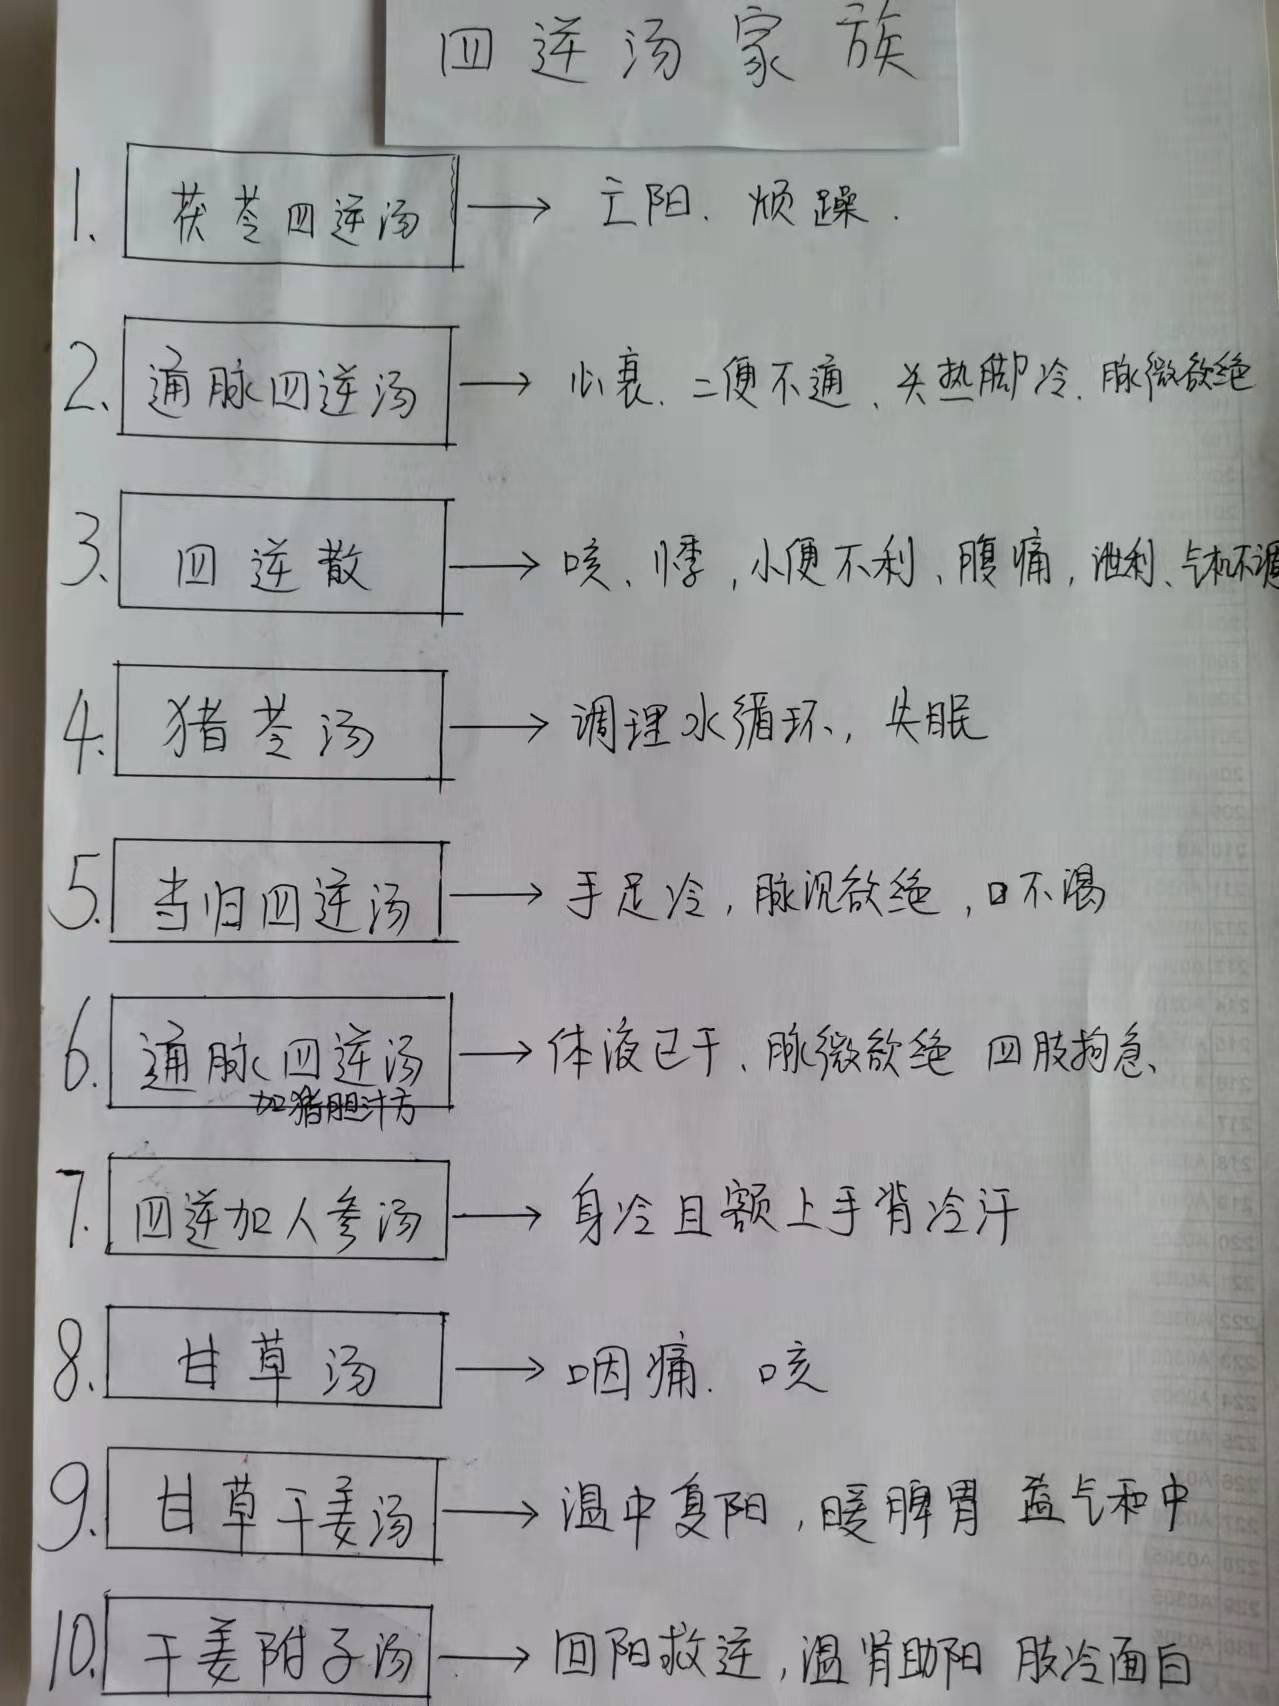 四逆汤家族
1. 茯苓四逆汤 → 亡阳. 烦躁.
2. 通脉四逆汤 → 心衰. 二便不通、头热脚冷. 脉微欲绝
3. 四逆散 → 咳、悸, 小便不利、腹痛, 泄利、气机不调
4. 猪苓汤 → 调理水循环, 失眠
5. 当归四逆汤 → 手足冷, 脉沉欲绝, 口不渴
6. 通脉四逆汤 → 体液已干、脉微欲绝 四肢拘急、
加猪胆汁方
7. 四逆加人参汤 → 身冷且额上手背冷汗
8. 甘草汤 → 咽痛. 咳
9. 甘草干姜汤 → 温中复阳, 暖脾胃 益气和中
10. 干姜附子汤 → 回阳救逆, 温肾助阳 肢冷面白